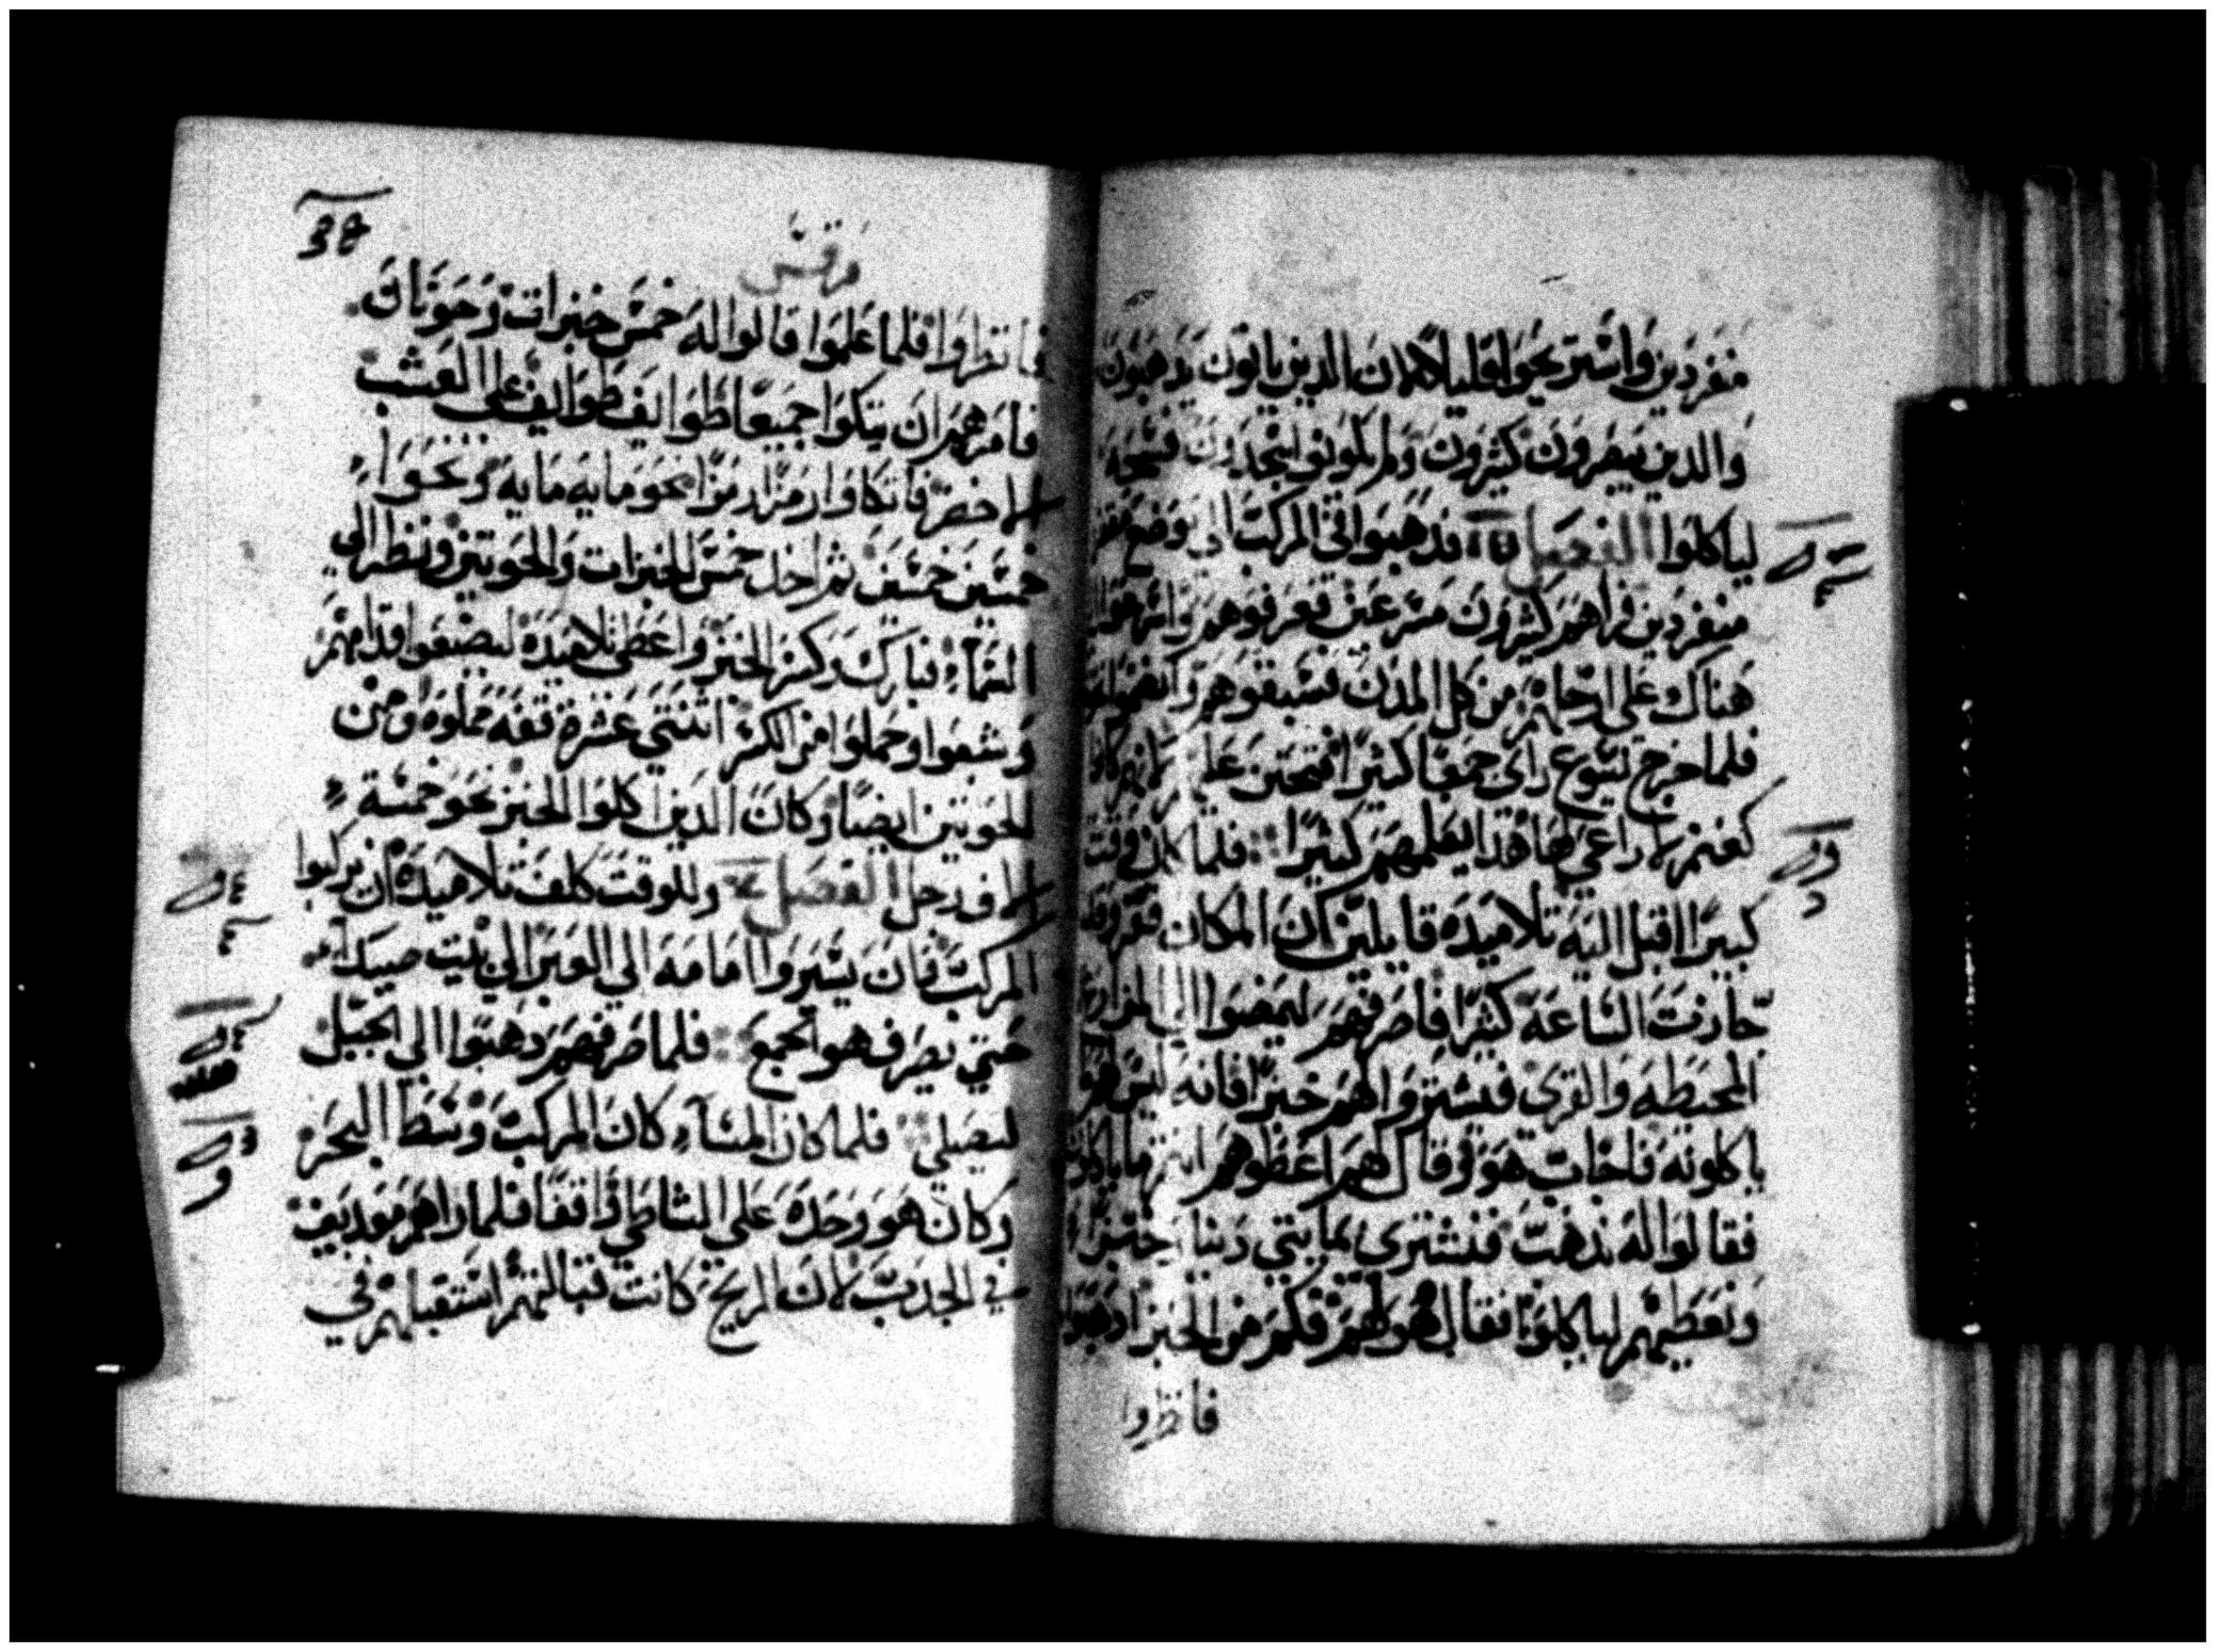 منفردين واستريحوا قليلا لان الدين ياتون يدهبون
والدين يعبرون كثيرون ولم يكونوا يجدون فسحه
لياكلوا الفصل فدهبوا في المركب الي موضع
منفردين فراهم كثيرون مسرعين فعرفوهم واتوا
هناك وعلى ارجلهم من كل المدن فسبقوهم
فلما خرج يسوع راى جمعا كثيرا فتحنن عليهم لانهم كانوا
كغنم لا راعي لها فبدا يعلمهم كثيرا فلما كان وقت
كبيرا اقبل اليه تلاميده قايلين ان المكان قفر وقد
جازت الساعه كثيرا فاصرفهم ليمضوا الى المزارع
المحيطه والقرى فيشتروا لهم خبزا فانه ليس لهم
ياكلونه فاجاب هو وقال لهم اعطوهم انتم ما ياكلون
فقالوا له ندهب فنشتري بمايتي دينار خبزا
ونعطيهم لياكلوا فقال هو لهم فكم من الخبز ادهبوا
فانظروا
مرقس
فانظروا فلما علموا قالوا له خمس خبزات وحوتان
فامرهم ان يتكوا جميعا طوايف طوايف على العشب
الاخضر فاتكاوا رمزا رمزا نحو مايه مايه ونحو
خمسين خمسين ثم اخد خمس الخبزات والحوتين ونظر الى
السماء فبارك وكسر الخبز واعطى تلاميده ليضعوا قدامهم
وشبعوا وحملوا من الكسر اثنتي عشرة قفه مملوه ومن
الحوتين ايضا وكان الدين اكلوا الخبز نحو خمسة
الاف رجل الفصل وللوقت كلف تلاميده ان يركبوا
المركب فان يسيروا امامه الي العبر الى بيت صيدا
حتي يصرف هو الجمع فلما صرفهم دهبوا الى الجبل
ليصلي فلما كان المساء كان المركب وسط البحر
وكان هو وحده على الشاطي واقفا فلما راهم معدبين
في الجدب لان الريح كانت قبالتهم استقبلهم في